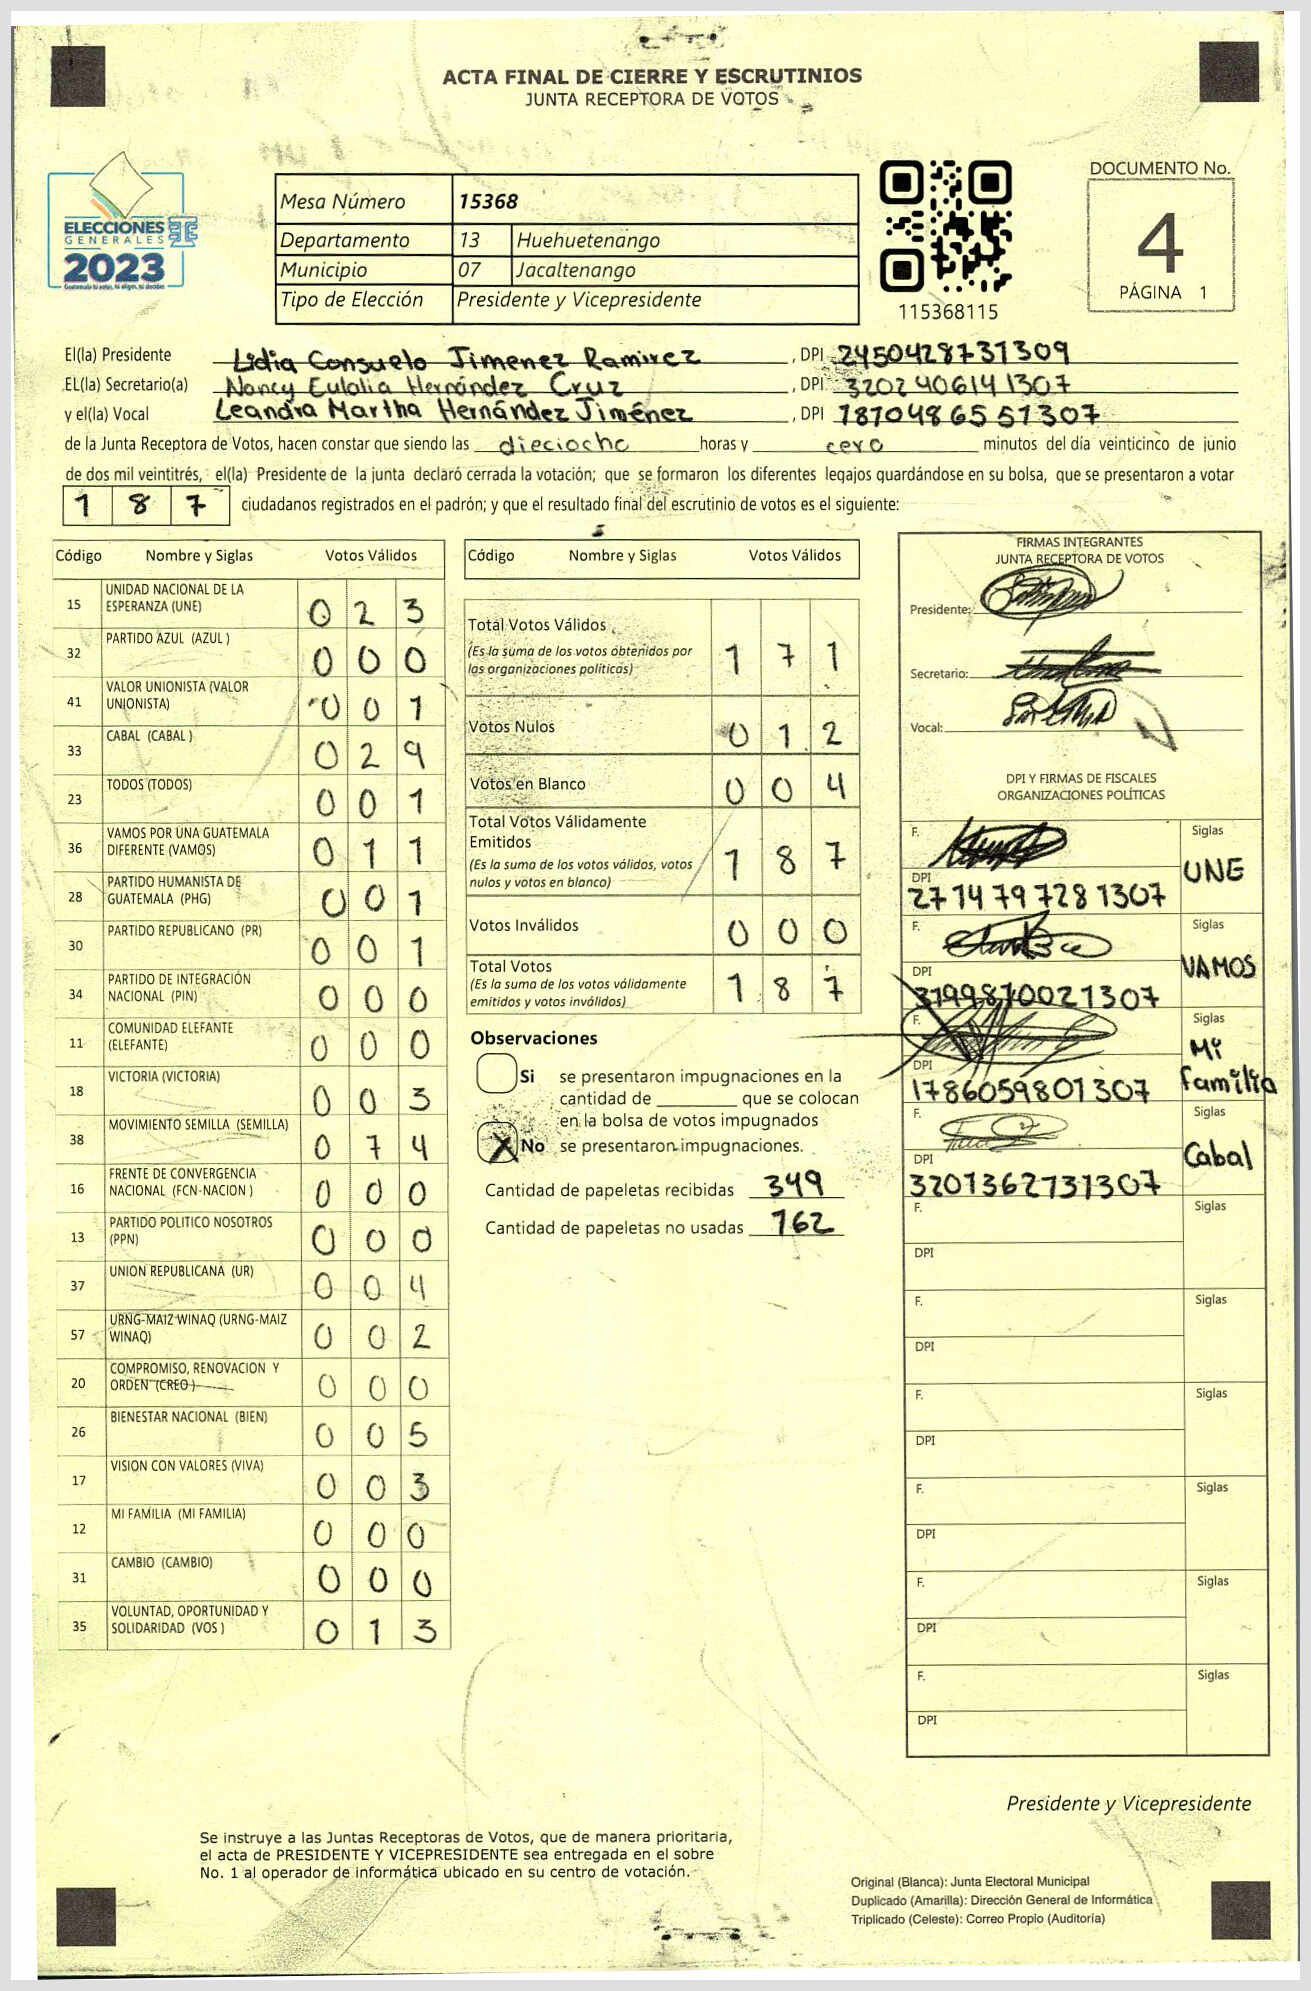 ACTA FINAL DE CIERRE Y ESCRUTINIOS
JUNTA RECEPTORA DE VOTOS
ELECCIONES
GENERALES
2023
Guatemala tú votas, tú eliges, tú decides
Mesa Número 15368
Departamento 13 Huehuetenango
Municipio 07 Jacaltenango
Tipo de Elección Presidente y Vicepresidente
115368115
DOCUMENTO No.
4
PÁGINA 1
El(la) Presidente Lidia Consuelo Jimenez Ramirez , DPI 2450428731309
EL(la) Secretario(a) Nancy Eulalia Hernández Cruz , DPI 3202406141307
y el(la) Vocal Leandra Martha Hernández Jiménez , DPI 1871048655 1307
de la Junta Receptora de Votos, hacen constar que siendo las dieciocho horas y cero minutos del día veinticinco de junio
de dos mil veintitrés, el(la) Presidente de la junta declaró cerrada la votación; que se formaron los diferentes legajos guardándose en su bolsa, que se presentaron a votar
187 ciudadanos registrados en el padrón; y que el resultado final del escrutinio de votos es el siguiente:
Código Nombre y Siglas Votos Válidos
15 UNIDAD NACIONAL DE LA ESPERANZA (UNE) 0 2 3
32 PARTIDO AZUL (AZUL ) 0 0 0
41 VALOR UNIONISTA (VALOR UNIONISTA) 0 0 1
33 CABAL (CABAL ) 0 2 9
23 TODOS (TODOS) 0 0 1
36 VAMOS POR UNA GUATEMALA DIFERENTE (VAMOS) 0 1 1
28 PARTIDO HUMANISTA DE GUATEMALA (PHG) 0 0 1
30 PARTIDO REPUBLICANO (PR) 0 0 1
34 PARTIDO DE INTEGRACIÓN NACIONAL (PIN) 0 0 0
11 COMUNIDAD ELEFANTE (ELEFANTE) 0 0 0
18 VICTORIA (VICTORIA) 0 0 3
38 MOVIMIENTO SEMILLA (SEMILLA) 0 7 4
16 FRENTE DE CONVERGENCIA NACIONAL (FCN-NACION ) 0 0 0
13 PARTIDO POLITICO NOSOTROS (PPN) 0 0 0
37 UNION REPUBLICANA (UR) 0 0 4
57 URNG-MAIZ WINAQ (URNG-MAIZ WINAQ) 0 0 2
20 COMPROMISO, RENOVACION Y ORDEN (CREO ) 0 0 0
26 BIENESTAR NACIONAL (BIEN) 0 0 5
17 VISION CON VALORES (VIVA) 0 0 3
12 MI FAMILIA (MI FAMILIA) 0 0 0
31 CAMBIO (CAMBIO) 0 0 0
35 VOLUNTAD, OPORTUNIDAD Y SOLIDARIDAD (VOS ) 0 1 3
Código Nombre y Siglas Votos Válidos
Total Votos Válidos 1 7 1
(Es la suma de los votos obtenidos por
las organizaciones políticas)
Votos Nulos 0 1 2
Votos en Blanco 0 0 4
Total Votos Válidamente
Emitidos 1 8 7
(Es la suma de los votos válidos, votos
nulos y votos en blanco)
Votos Inválidos 0 0 0
Total Votos 1 8 7
(Es la suma de los votos válidamente
emitidos y votos inválidos)
Observaciones
Si se presentaron impugnaciones en la
cantidad de ________ que se colocan
en la bolsa de votos impugnados
X No se presentaron impugnaciones.
Cantidad de papeletas recibidas 349
Cantidad de papeletas no usadas 162
FIRMAS INTEGRANTES
JUNTA RECEPTORA DE VOTOS
Presidente:
Secretario:
Vocal:
DPI Y FIRMAS DE FISCALES
ORGANIZACIONES POLÍTICAS
F. Siglas
UNE
DPI
2714797281307
F. Siglas
VAMOS
DPI
3199870021307
F. Siglas
Mi
familia
DPI
1786059801307
F. Siglas
Cabal
DPI
3201362731307
F. Siglas
DPI
F. Siglas
DPI
F. Siglas
DPI
F. Siglas
DPI
F. Siglas
DPI
F. Siglas
DPI
Presidente y Vicepresidente
Se instruye a las Juntas Receptoras de Votos, que de manera prioritaria,
el acta de PRESIDENTE Y VICEPRESIDENTE sea entregada en el sobre
No. 1 al operador de informática ubicado en su centro de votación.
Original (Blanca): Junta Electoral Municipal
Duplicado (Amarilla): Dirección General de Informática
Triplicado (Celeste): Correo Propio (Auditoría)